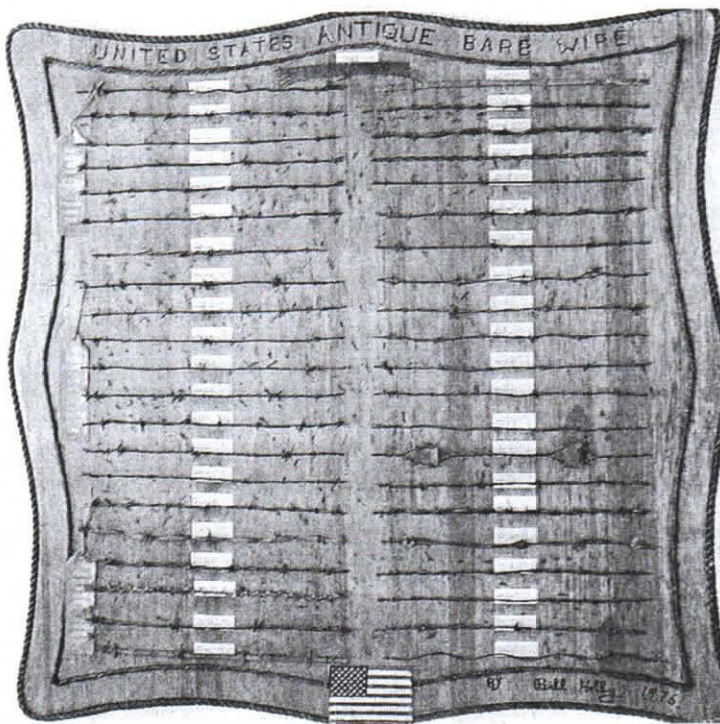 UNITED STATES ANTIQUE BARB WIRE
BY Bill 1976